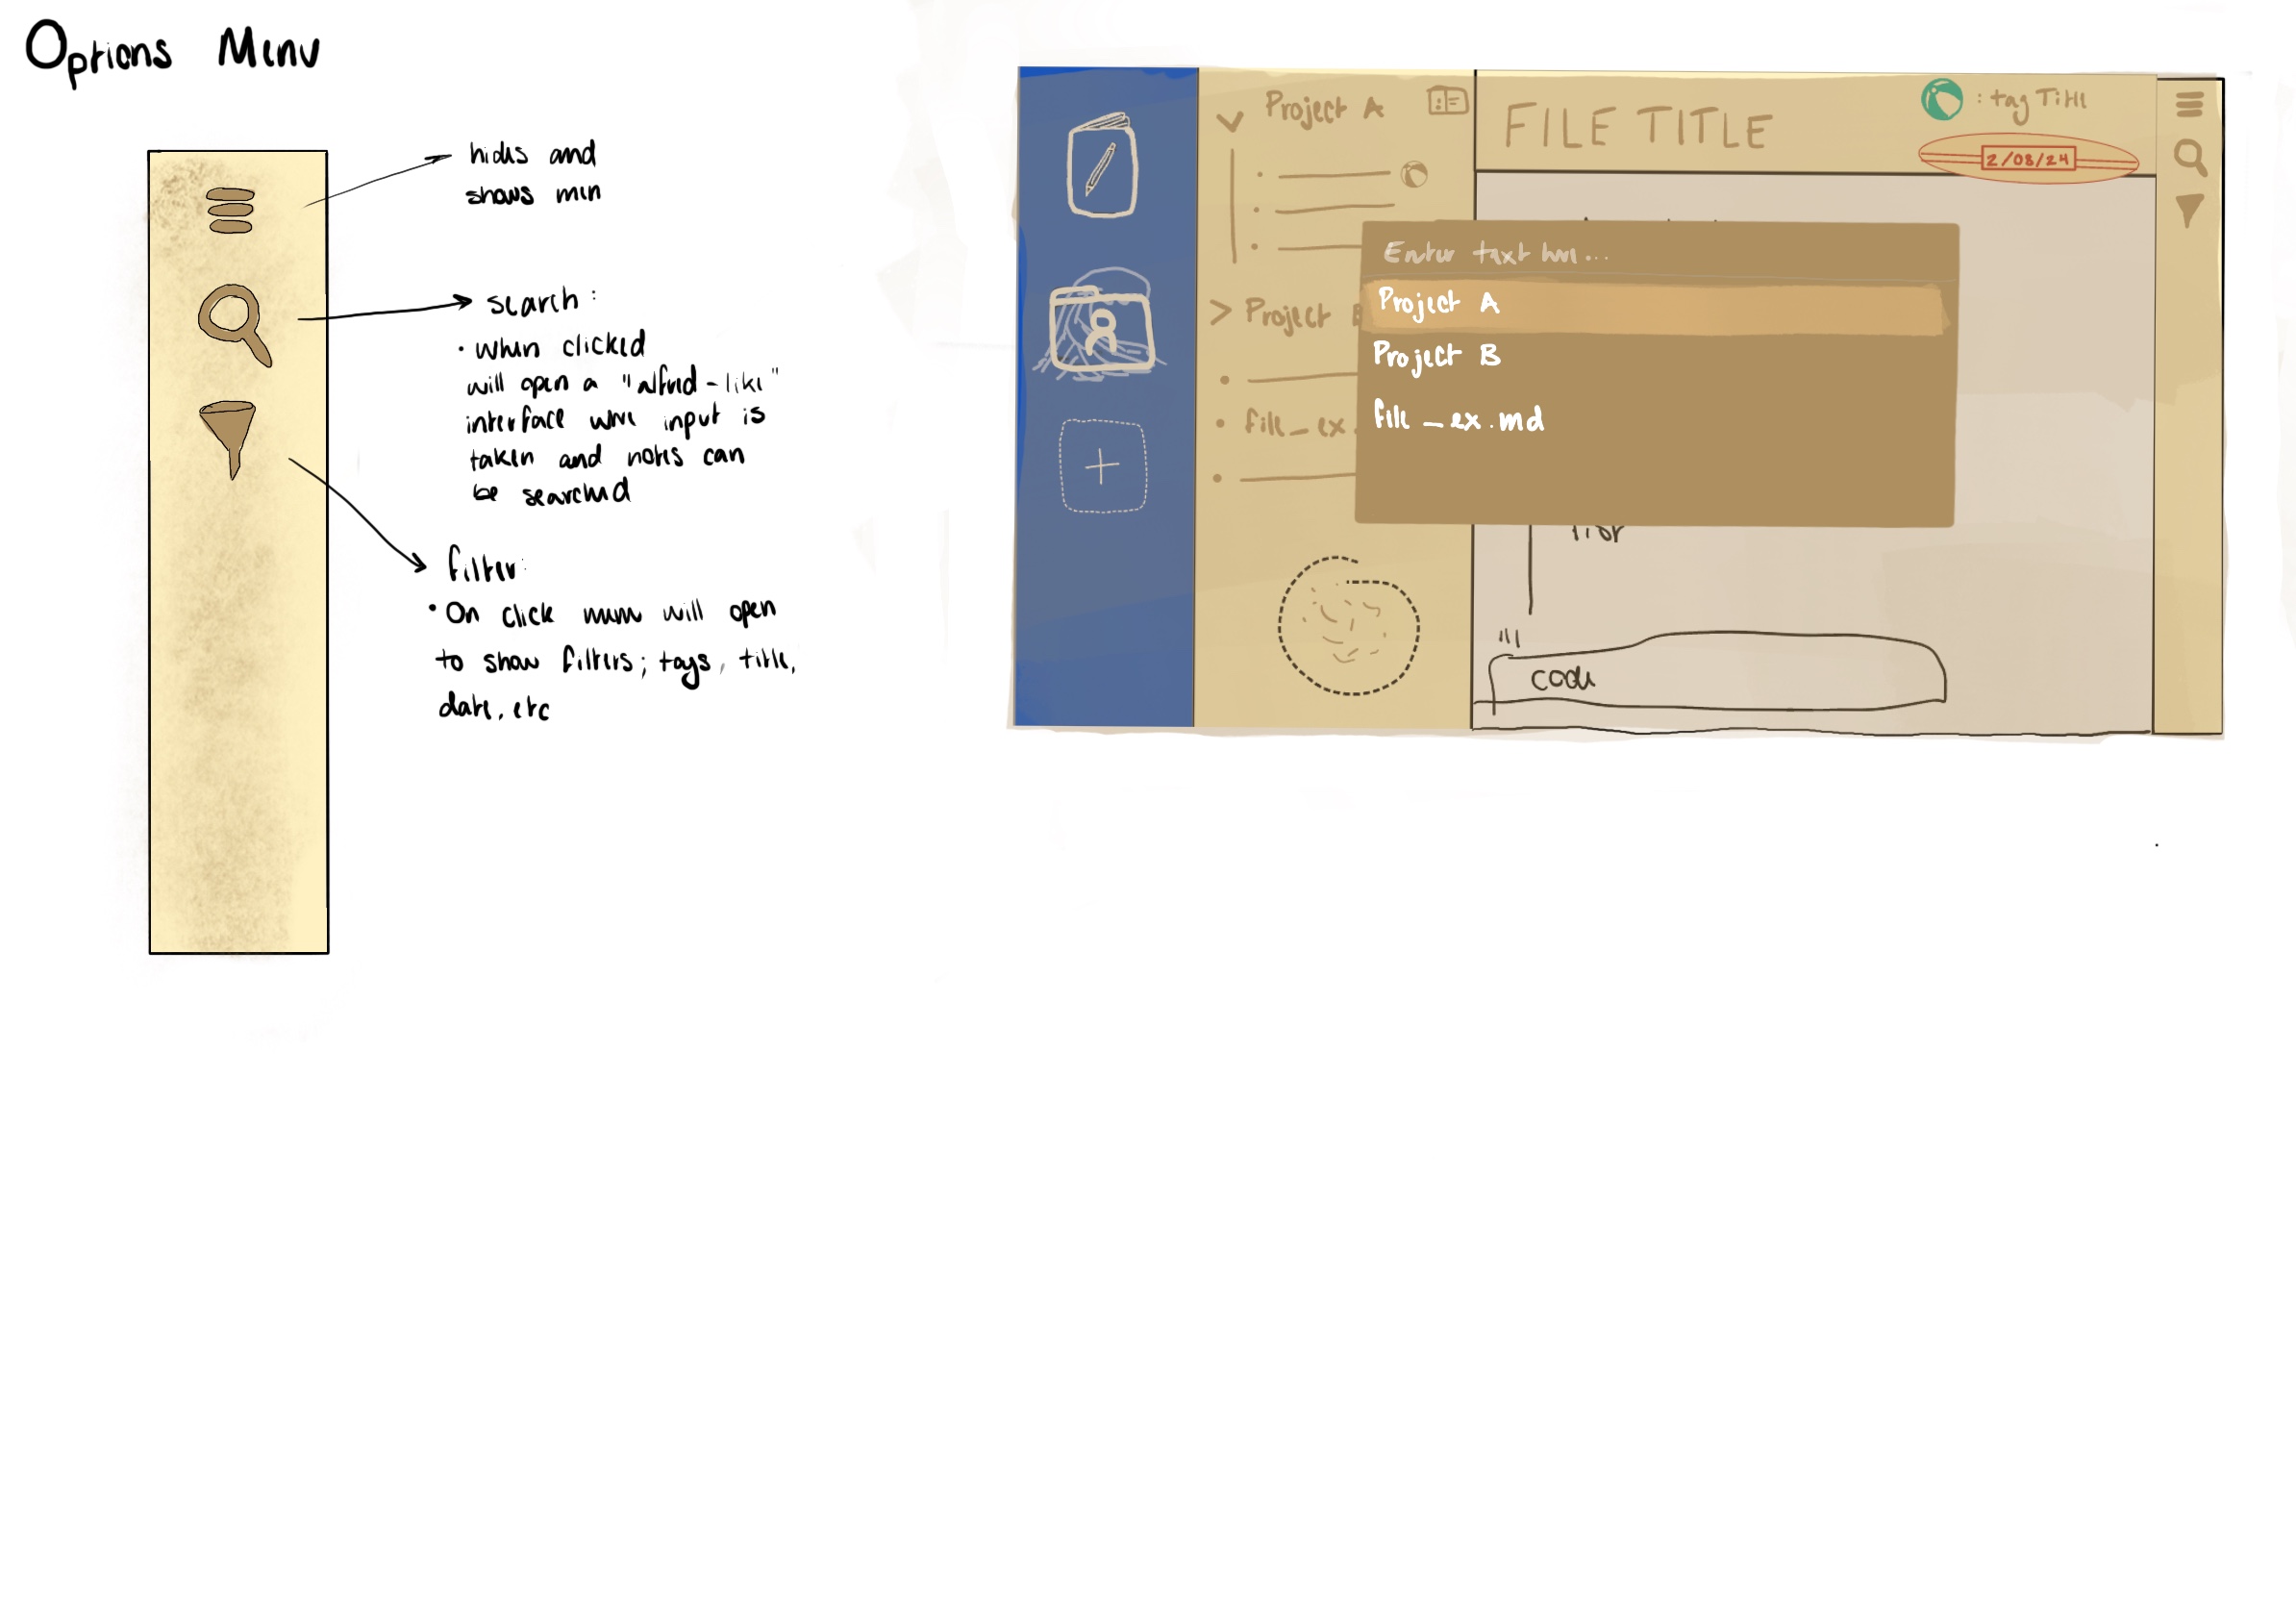 Options Menu
hides and
shows men
search:
• when clicked
will open a "alfred-like"
interface where input is
taken and notes can
be searched
filter:
• On click menu will open
to show filters; tags, title,
date, etc
Project A
> Project B
• file_ex.
FILE TITLE
: tag Title
2/08/24
Enter text here...
Project A
Project B
file_ex.md
list
code